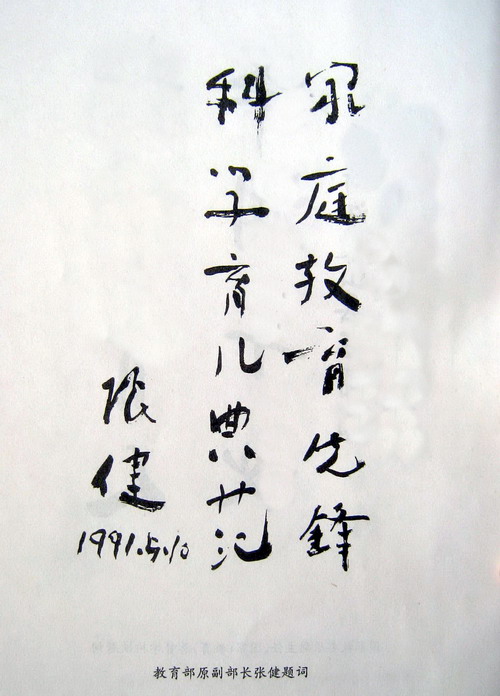 家庭教育先锋
科学育儿典范
张健
1991.5.10
教育部原副部长张健题词